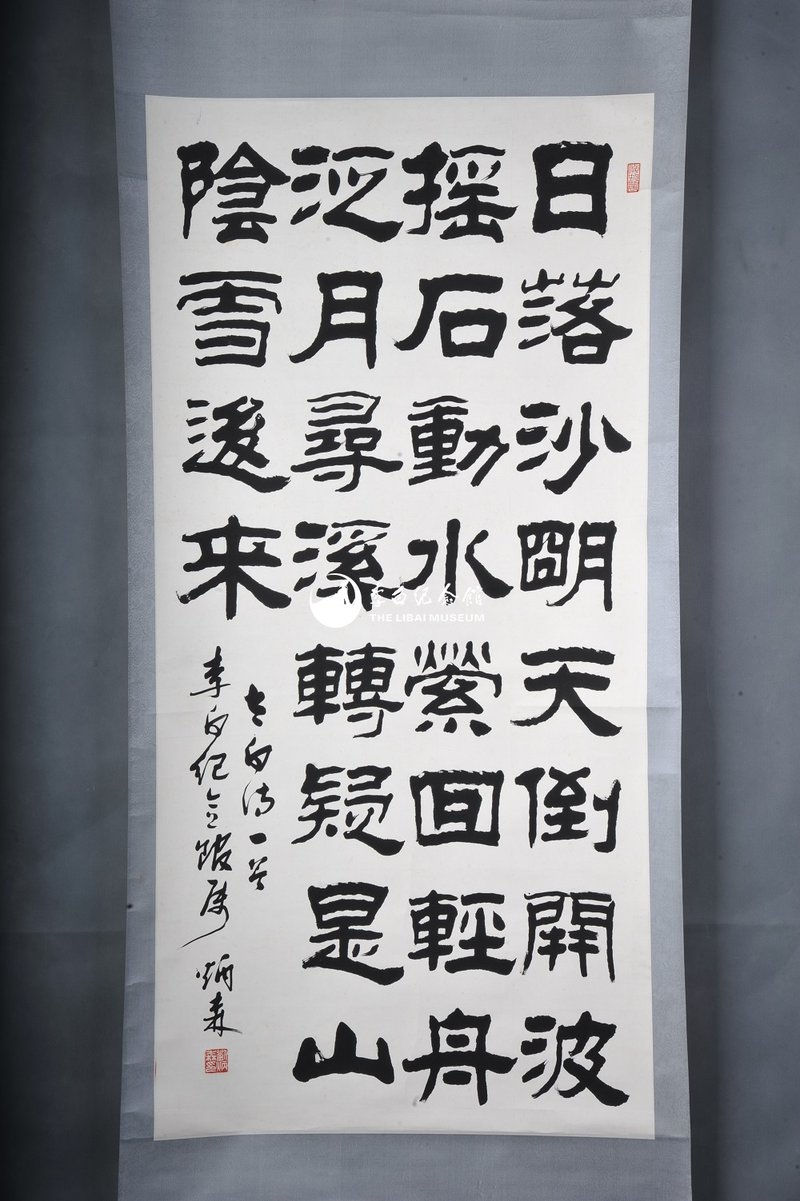 日落沙明天倒開波
摇石動水縈回輕舟
泛月尋溪轉疑是山
陰雪後来
太白詩一首
李白纪念館属 炳森
李白纪念館
THE LIBAI MUSEUM